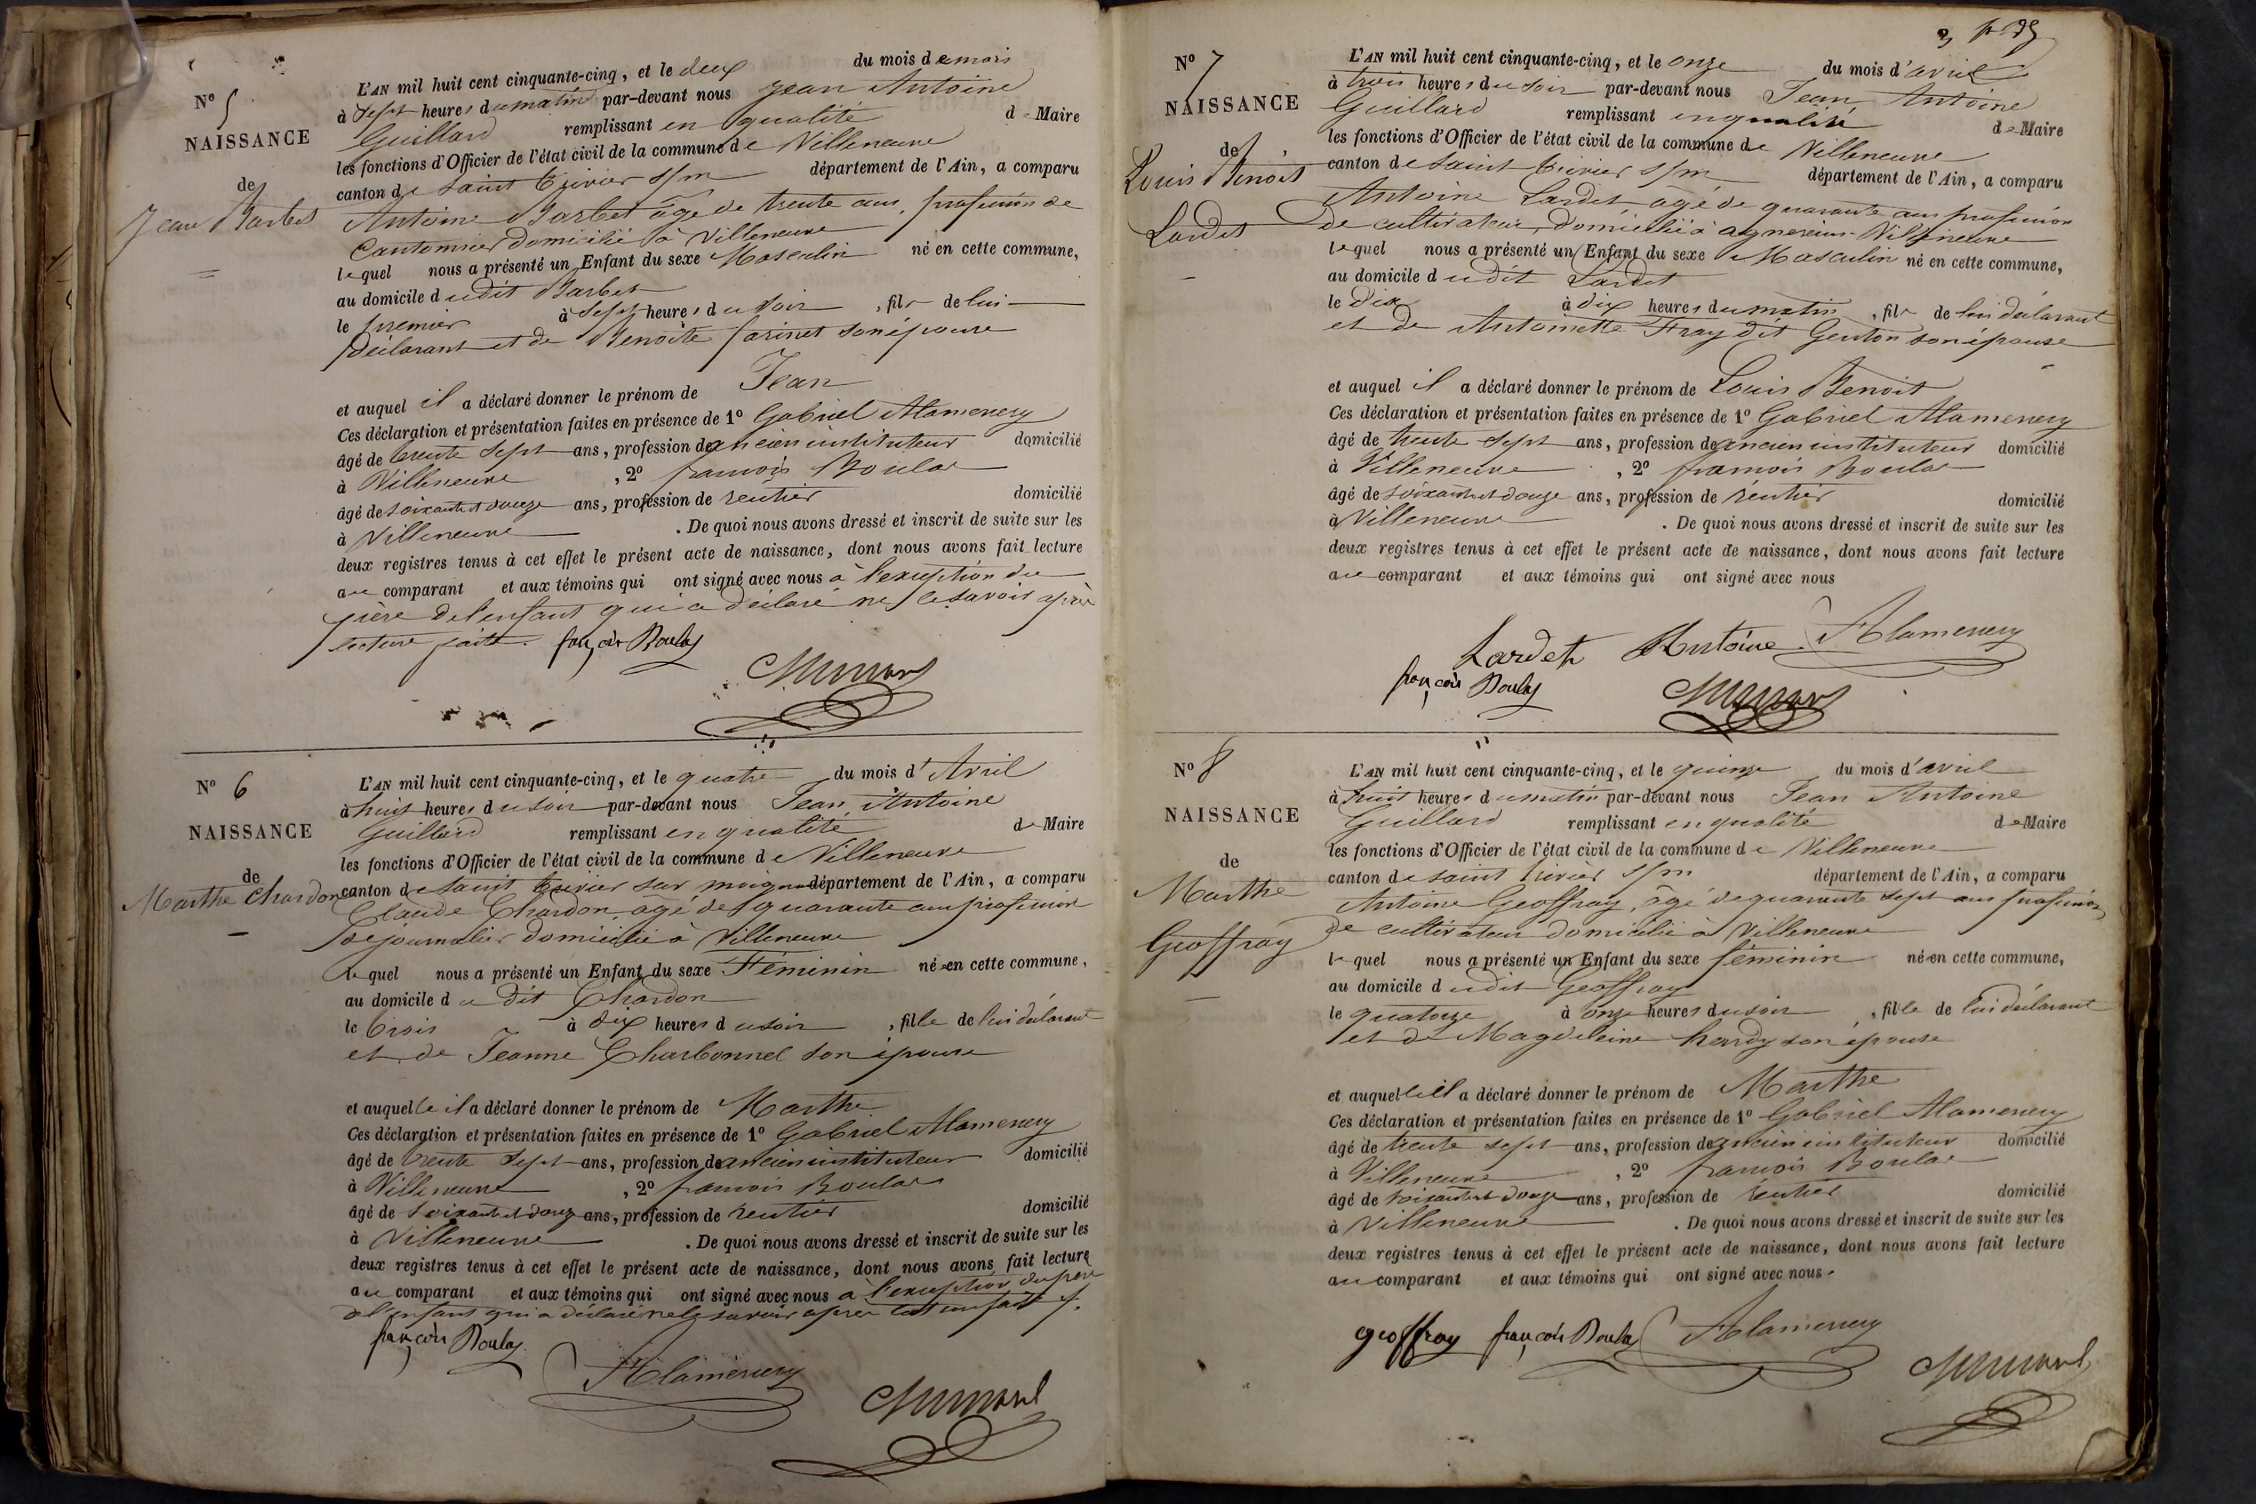 N° 5
NAISSANCE
de
Jean Barbet
L'AN mil huit cent cinquante-cinq, et le deux du mois de mars
à sept heures du matin par-devant nous Jean Antoine
Guillard remplissant en qualité de Maire
les fonctions d'Officier de l'état civil de la commune de Villeneuve
canton de saint trivier s/m département de l'Ain, a comparu
Antoine Barbet âgé de trente ans, profession de
Cantonnier domicilié à Villeneuve
lequel nous a présenté un Enfant du sexe Masculin né en cette commune,
au domicile dudit Barbet
le premier à sept heures du soir, fils de lui
déclarant et de Benoite farinet son épouse
et auquel il a déclaré donner le prénom de Jean
Ces déclaration et présentation faites en présence de 1° Gabriel Alamercery
âgé de trente sept ans, profession de ancien instituteur domicilié
à Villeneuve, 2° francois Boulas
âgé de soixante et douze ans, profession de rentier domicilié
à Villeneuve. De quoi nous avons dressé et inscrit de suite sur les
deux registres tenus à cet effet le présent acte de naissance, dont nous avons fait lecture
au comparant et aux témoins qui ont signé avec nous à l'exception du
père de l'enfant qui a déclaré ne le savoir après
lecture faite. françois Boulas
N° 6
NAISSANCE
de
Marthe Chardon
L'AN mil huit cent cinquante-cinq, et le quatre du mois d'Avril
à huit heures du soir par-devant nous Jean Antoine
Guillard remplissant en qualité de Maire
les fonctions d'Officier de l'état civil de la commune de Villeneuve
canton de saint trivier sur moignans département de l'Ain, a comparu
Claude Chardon, âgé de quarante ans profession
de journalier domicilié à Villeneuve
lequel nous a présenté un Enfant du sexe Féminin né en cette commune,
au domicile du dit Chardon
le trois à dix heures du soir, fille de lui déclarant
et de Jeanne Charbonnel son épouse
et auquelle il a déclaré donner le prénom de Marthe
Ces déclaration et présentation faites en présence de 1° Gabriel Alamercery
âgé de trente sept ans, profession de ancien instituteur domicilié
à Villeneuve, 2° francois Boulas
âgé de soixante et douze ans, profession de rentier domicilié
à Villeneuve. De quoi nous avons dressé et inscrit de suite sur les
deux registres tenus à cet effet le présent acte de naissance, dont nous avons fait lecture
au comparant et aux témoins qui ont signé avec nous à l'exception du père
de l'enfant qui a déclaré ne le savoir après lecture faite
françois Boulas
Alamercery
N° 7
NAISSANCE
de
Louis Benoit
Lardet
L'AN mil huit cent cinquante-cinq, et le onze du mois d'avril
à trois heures du soir par-devant nous Jean Antoine
Guillard remplissant en qualité de Maire
les fonctions d'Officier de l'état civil de la commune de Villeneuve
canton de saint trivier s/m département de l'Ain, a comparu
Antoine Lardet âgé de quarante ans profession
de cultivateur, domicilié à agnereins Villeneuve
lequel nous a présenté un Enfant du sexe Masculin né en cette commune,
au domicile dudit Lardet
le dix à dix heures du matin, fils de lui déclarant
et de Antoinette Fray dit Genton son épouse
et auquel il a déclaré donner le prénom de Louis Benoit
Ces déclaration et présentation faites en présence de 1° Gabriel Alamercery
âgé de trente sept ans, profession de ancien instituteur domicilié
à Villeneuve, 2° francois Boulas
âgé de soixante et douze ans, profession de rentier domicilié
à Villeneuve. De quoi nous avons dressé et inscrit de suite sur les
deux registres tenus à cet effet le présent acte de naissance, dont nous avons fait lecture
au comparant et aux témoins qui ont signé avec nous
Lardet Antoine Alamercery
françois Boulas
N° 8
NAISSANCE
de
Marthe
Geoffray
L'AN mil huit cent cinquante-cinq, et le quinze du mois d'avril
à huit heures du matin par-devant nous Jean Antoine
Guillard remplissant en qualité de Maire
les fonctions d'Officier de l'état civil de la commune de Villeneuve
canton de saint trivier s/m département de l'Ain, a comparu
Antoine Geoffray, âgé de quarante sept ans profession
de cultivateur domicilié à Villeneuve
lequel nous a présenté un Enfant du sexe féminin né en cette commune,
au domicile dudit Geoffray
le quatorze à onze heures du soir, fille de lui déclarant
et de Magdeleine hardy son épouse
et auquelle il a déclaré donner le prénom de Marthe
Ces déclaration et présentation faites en présence de 1° Gabriel Alamercery
âgé de trente sept ans, profession de ancien instituteur domicilié
à Villeneuve, 2° francois Boulas
âgé de soixante et douze ans, profession de rentier domicilié
à Villeneuve. De quoi nous avons dressé et inscrit de suite sur les
deux registres tenus à cet effet le présent acte de naissance, dont nous avons fait lecture
au comparant et aux témoins qui ont signé avec nous.
geoffray françois Boulas Alamercery